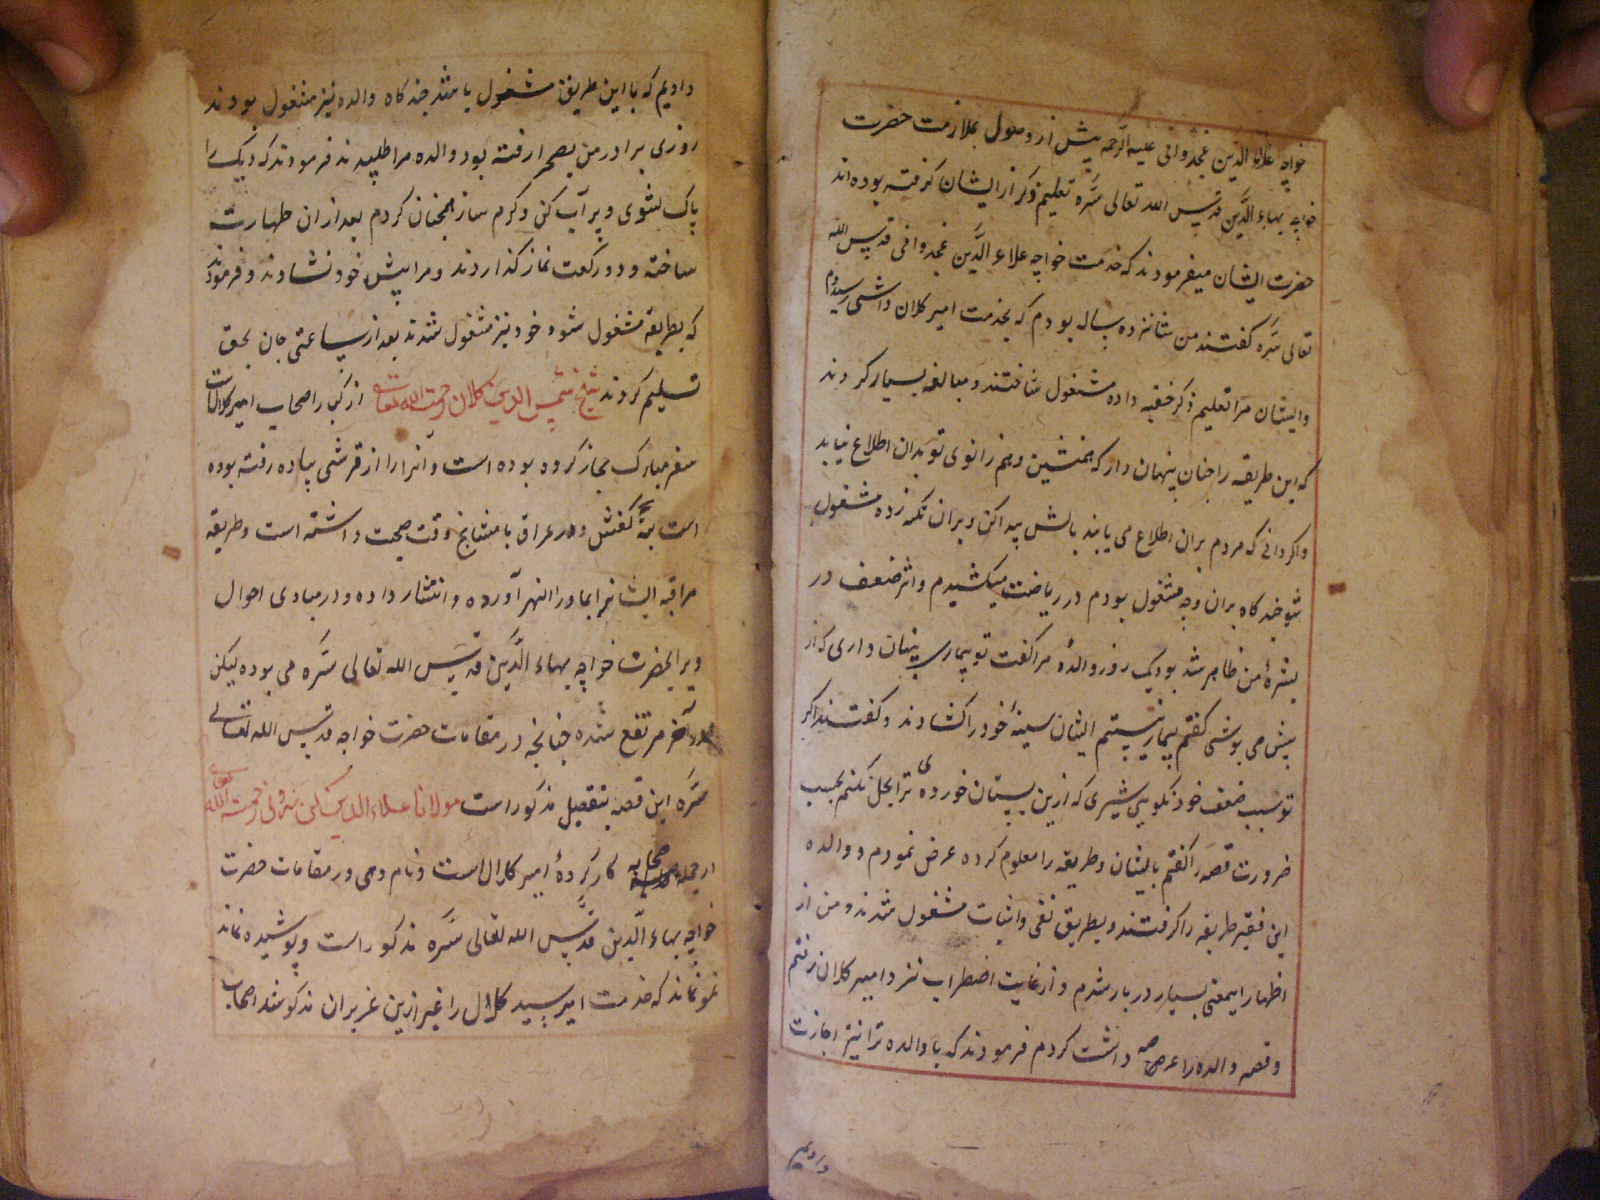 خواجه علاء الدّین غجدوانی علیه الرّحمه پیش از وصول بملازمت حضرت
خواجه بهاء الدّین قدّس الله تعالی سرّه تعلیم ذکر از ایشان گرفته بوده اند
حضرت ایشان میفرمودند که خدمت خواجه علاء الدّین غجدوانی قدّس الله
تعالی سرّه گفتند من شانزده ساله بودم که بخدمت امیر کلان واشی رسیدم
و ایشان مرا تعلیم ذکر خفیه داده مشغول ساختند و مبالغه بسیار کردند
که این طریقه را چنان پنهان دار که همنشین و هم زانوی تو بدان اطلاع نیابد
و اگر دانی که مردم بران اطلاع می یابند بالش پیدا کن و بران تکیه زده مشغول
شو چند گاه بران وجه مشغول بودم در ریاضت میکشیدم و اثر ضعف در
بشرهٔ من ظاهر شد بود یک روز والدهٔ مرا گفت تو بیماری پنهان داری که از
پیش می پوشی گفتم بیمار نیستم ایشان سینهٔ خود را کشادند و گفتند اگر
تو سبب ضعف خود نگویی شیری که ازین پستان خورده ی ترا بحل نکنم بحسب
ضرورت قصه را گفتم بایشان و طریقه را معلوم کرده عرض نمودم و والده
این فقیر طریقه را گرفتند و بطریق نفی و اثبات مشغول شدند و من از
اظهار اینمعنی بسیار در بار شدم و از غایت اضطراب نزد امیر کلان رفتم
و قصه والده را عرضه داشت کردم فرمودند که با والده ترا نیز اجازت
دادیم
دادیم که با این طریق مشغول باشند چند گاه والده نیز مشغول بودند
روزی برادر من بصحرا رفته بود والده مرا طلبیدند فرمودند که دیگ را
پاک بشوی و پر آب کن و گرم ساز همچنان کردم بعد ازان طهارت
ساخته و دو رکعت نماز گذاردند و مرا پیش خود نشاندند و فرمودند
که بطریقه مشغول شو و خود نیز مشغول شدند بعد از ساعتی جان بحق
تسلیم کردند شیخ شمس الدین کلان رحمت الله تعالی از کبار اصحاب امیر کلال است
سفر مبارک حجاز کرده بوده است و آنرا از قرشی پیاده رفته بوده
است کفش و در عراق با مشایخ وقت صحبت داشته است و طریقه
مراقبه ایشانرا بماوراالنهر آورده و انتشار داده و در مبادی احوال
ویرا بحضرت خواجه بهاء الدّین قدّس الله تعالی سرّه می بوده لیکن
در آخر مرتفع شده چنانچه در مقامات حضرت خواجه قدّس الله تعالی
سرّه این قصه بتفصیل مذکور است مولانا علاء الدین رحمت الله تعالی
از جمله صحابه کار کردهٔ امیر کلال است و نام وی در مقامات حضرت
خواجه بهاء الدّین قدّس الله تعالی سرّه مذکور است و پوشیده نماند
نماند که خدمت امیر سید کلال را غیر ازین عزیزان مذکور شد اصحاب